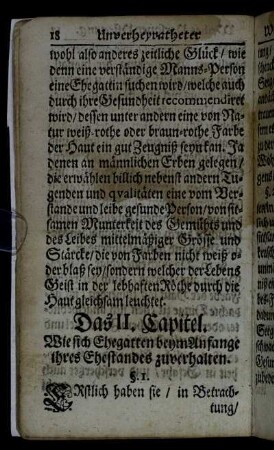 18 Unverheyratheter
wohl also anderes zeitliche Glück / wie
denn eine verständige Manns-Person
eine Ehegattin suchen wird / welche auch
durch ihre Gesundheit recommendiret
wird / dessen unter andern eine von Na-
tur weiß-rothe oder braun-rothe Farbe
der Haut ein gut Zeugniß seyn kan. Ja
denen an männlichen Erben gelegen /
die erwählen billich nebenst andern Tu-
genden und qvalitäten eine vom Ver-
stande und leibe gesunde Person / von sitt-
samen Munterkeit des Gemühts und
des Leibes mittelmäßiger Grösse und
Stärcke / die von Farben nicht weiß o-
der blaß sey / sondern welcher der Lebens
Geist in der lebhafften Röthe durch die
Haut gleichsam leuchtet.
Das II. Capitel.
Wie sich Ehegatten beym Anfange
ihres Ehestandes zuverhalten.
§. 1.
ERstlich haben sie / in Betrach-
tung /